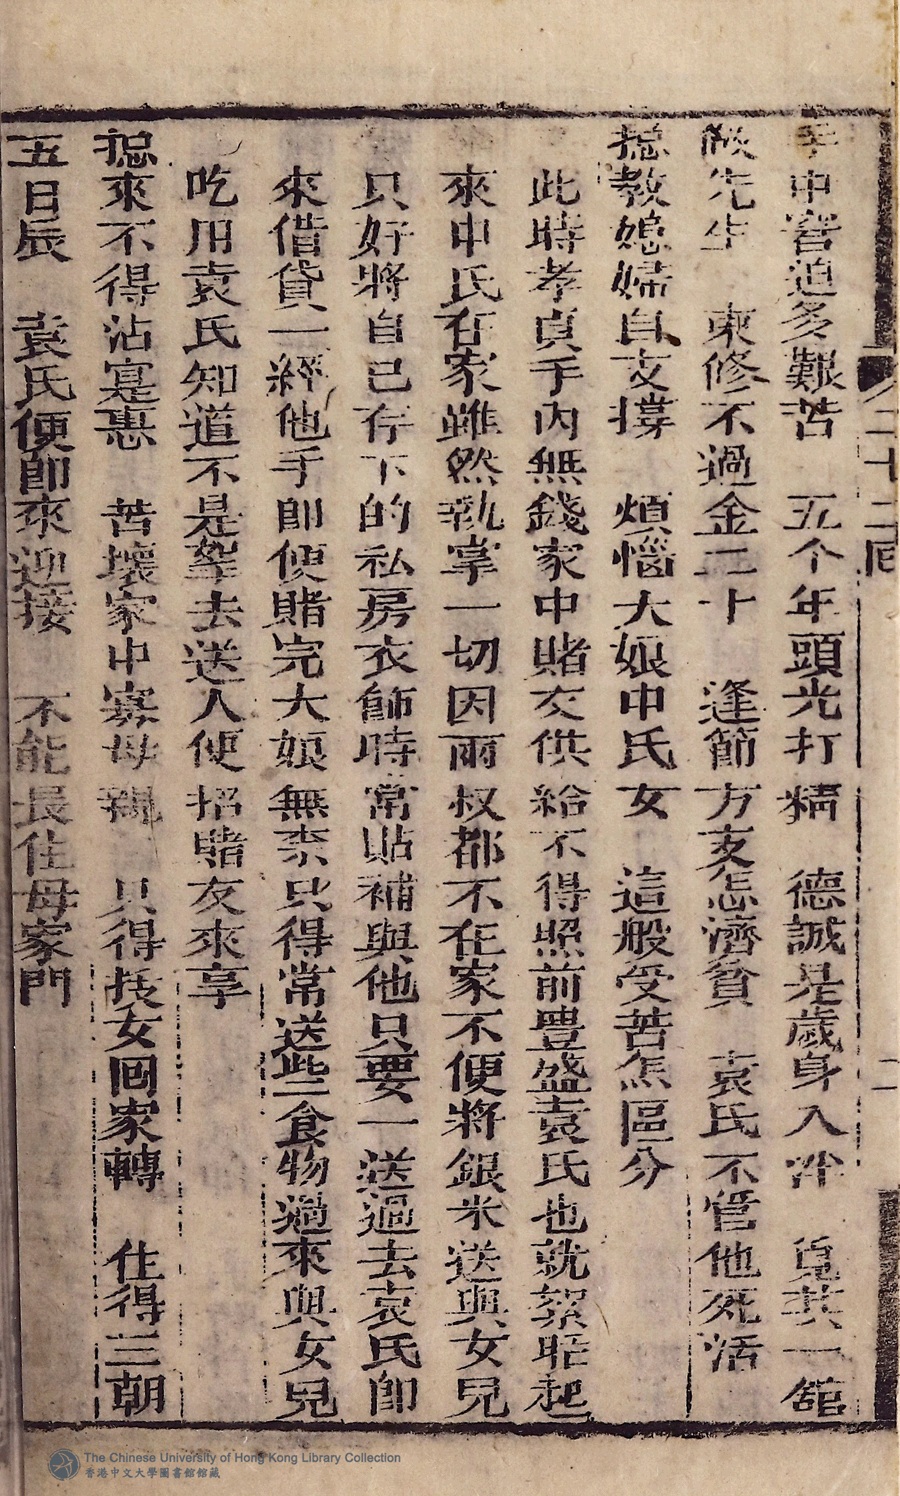 手中窘迫多艱苦　五个年頭光打精　德誠是歲身入泮　覓其一舘
先生　束修不過金二十　逢節方交怎濟貧　袁氏不管他死活
揔教媳婦自支撐　煩惱大娘申氏女　這般受苦怎區分
此時孝貞手內無錢家中賭友供給不得照前豊盛袁氏也就絮聒起
來申氏在家雖然執掌一切因兩叔都不在家不便將銀米送與女兒
只好將自己存下的私房衣飾時常貼補與他只要一送過去袁氏即
來借貸一經他手即便賭完大娘無柰只得常送些食物過來與女兒
吃用袁氏知道不是拏去送人便招賭友來享
揔來不得沾寔惠　苦壞家中寡母親　只得接女回家轉　住得三朝
五日辰　袁氏便即來迎接　不能長住母家門
二十二囘
The Chinese University of Hong Kong Library Collection
香港中文大學圖書館館藏